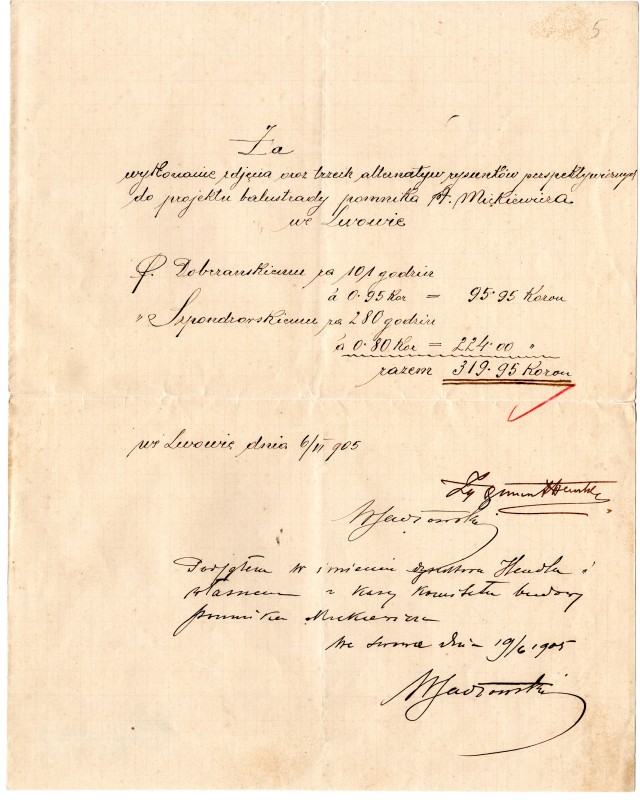 5
Za
wykonanie zdjęcia oraz trzech alternatyw rysunków perspektywicznych
do projektu balustrady pomnika A. Mickiewicza
we Lwowie
P. Dobrzańskiemu za 101 godzin
à 0.95 Kor = 95.95 Koron
" Szpondrowskiemu za 280 godzin
à 0.80 Kor = 224.00 "
razem 319.95 Koron
we Lwowie dnia 6/VI 905
Zygmunt Hendel
WSadłowski
Podjąłem w imieniu Hendla i
własnem z kasy Komitetu budowy
pomnika Mickiewicza
we Lwowie dnia 19/6 1905
WSadłowski